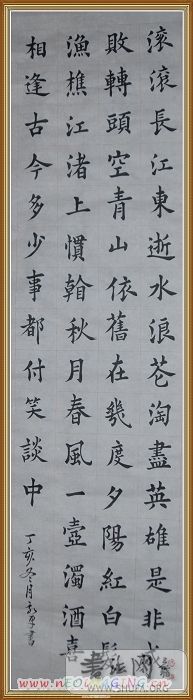 滚滚長江東逝水浪花淘盡英雄是非成
敗轉頭空青山依舊在幾度夕陽紅白髮
漁樵江渚上慣看秋月春風一壺濁酒喜
相逢古今多少事都付笑談中
丁亥冬月書
WWW.SHUFA.ORG
www.nEOiMAGING.cn